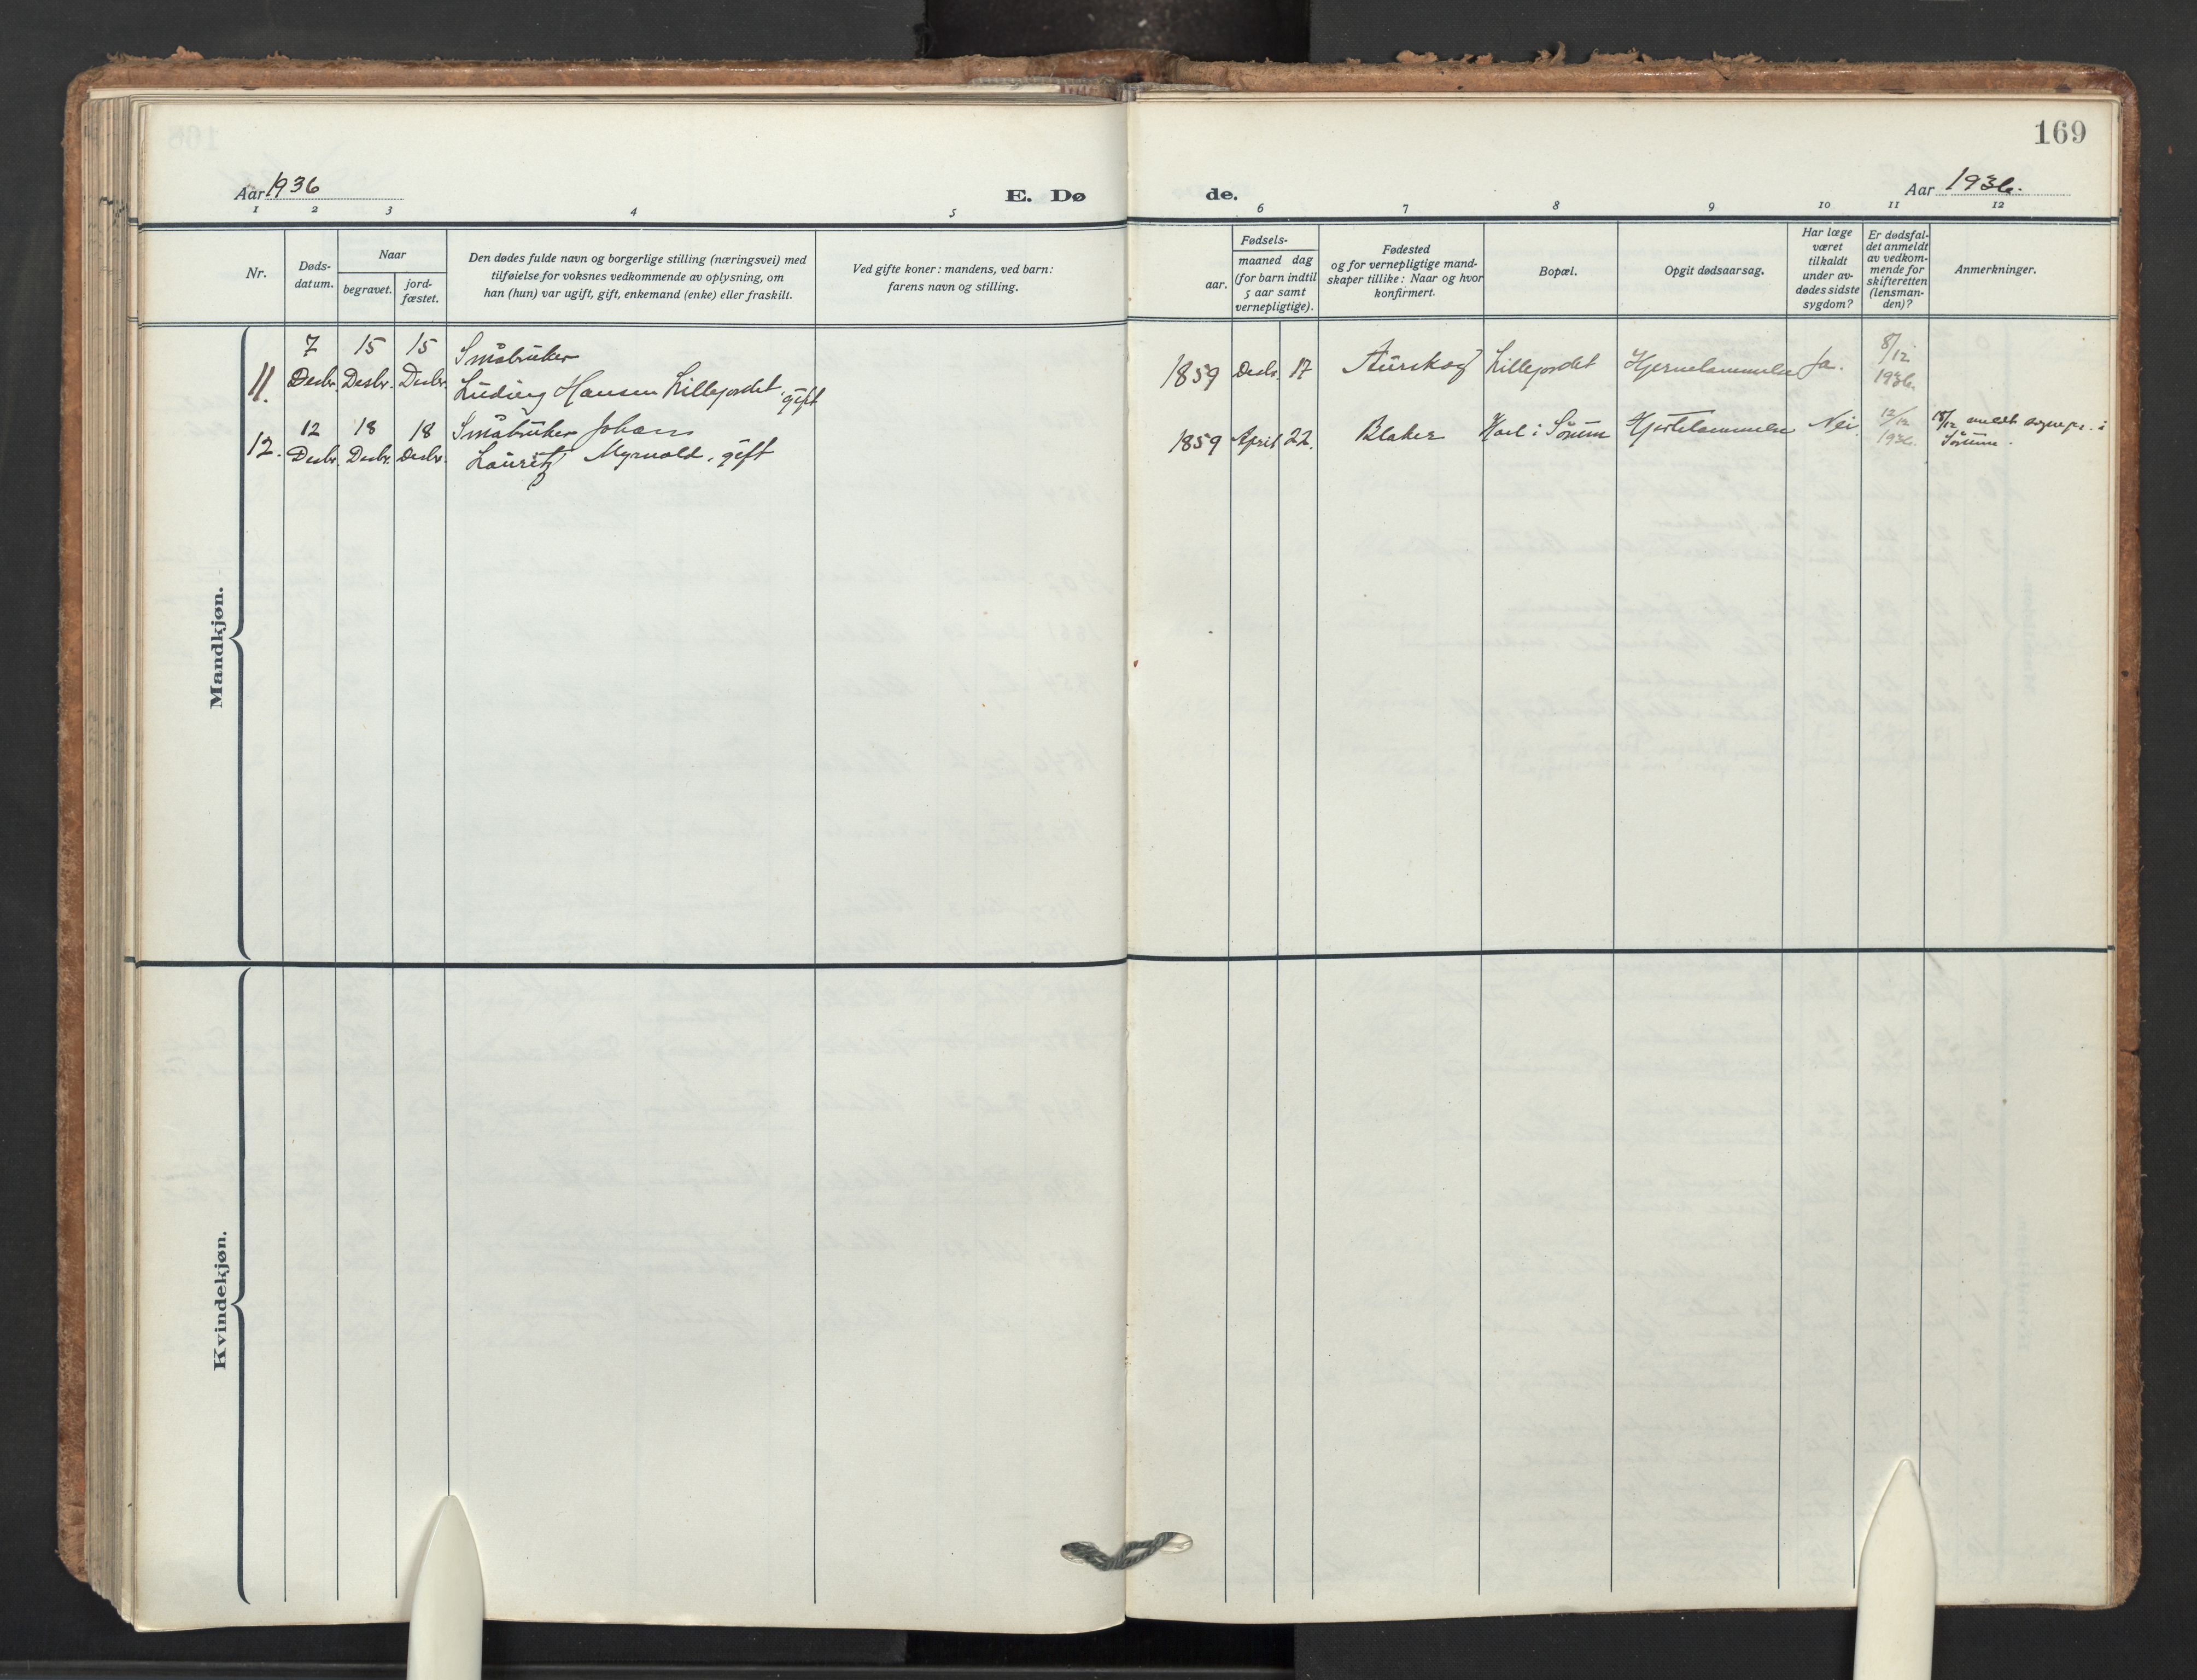 169
Aar 1936
E. Dø
de.
Aar 1936.
1 2 3 4 5 6 7 8 9 10 11 12
Nr.
Døds-
datum.
Naar
begravet.
jord-
fæstet.
Den dødes fulde navn og borgerlige stilling (næringsvei) med
tilføielse for voksnes vedkommende av oplysning, om
han (hun) var ugift, gift, enkemand (enke) eller fraskilt.
Ved gifte koner: mandens, ved barn:
farens navn og stilling.
Fødsels-
aar.
maaned dag
(for barn indtil
5 aar samt
vernepligtige).
Fødested
og for vernepligtige mand-
skaper tillike: Naar og hvor
konfirmert.
Bopæl.
Opgit dødsaarsag.
Har læge
været
tilkaldt
under av-
dødes sidste
sygdom?
Er dødsfal-
det anmeldt
av vedkom-
mende for
skifteretten
(lensman-
den)?
Anmerkninger.
Mandkjøn.
7 15 15 Småbruker 8/12
11. Desbr. Desbr. Desbr. Ludvig Hansen Lillejordet, gift 1859 Desb. 17 Aurskog Lillejordet Ja. 1936.
12 18 18 Småbruker Johan 12/12 18/12 i
12. Desbr. Desbr. Desbr. Lauritz Myrvold, gift 1859 April 22. Blaker i Sørum Hjertelammelse Nei 1936. Sørum.
Kvindekjøn.